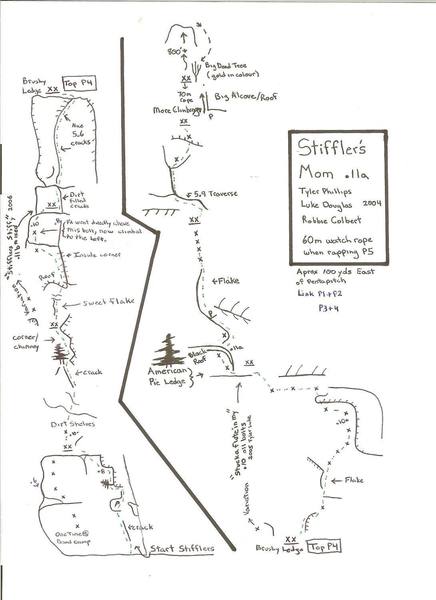 Brushy
Ledge
XX
Top P4
Nice
5.6
cracks
XX
Dirt
filled
cracks
.10
Inside corner
Roof
Sweet flake
XX
corner/
chimney
crack
Dirt Shelves
.8
One Time @
Band Camp
crack
Start Stifflers
800'
XX
70m
rope
More Climbing
Big Dead Tree
(gold in colour)
Big Alcove/Roof
P
5.9 Traverse
XX
Flake
P
.11a
Black
Roof
XX
American
Pie Ledge
"Stuck a flute in my
.10 all bolts
Variation
.10+
Flake
XX
Brushy Ledge
Top P4
Stiffler's
Mom .11a
Tyler Phillips
Luke Douglas 2004
Robbie Colbert
60m watch rope
when rapping P5
Aprox 100 yds East
of Pentapitch
Link P1+P2
P3+4